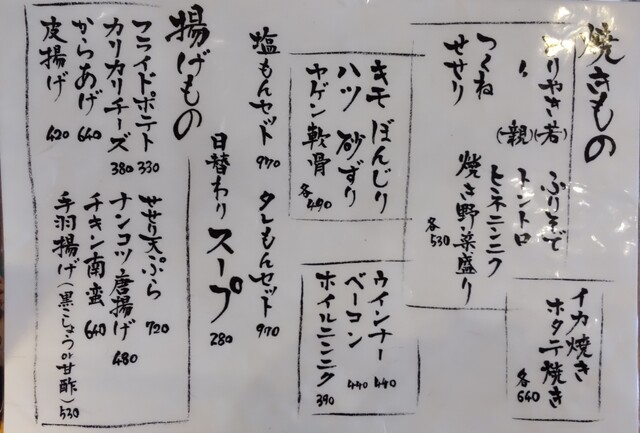 焼きもの
とりやき(若)
〃(親)
つくね
せせり
ふりそで
トントロ
ヒネニンニク
焼き野菜盛り
各530
イカ焼き
ホタテ焼き
各640
キモ ぼんじり
ハツ 砂ずり
ヤゲン軟骨
各490
ウインナー 440
ベーコン 440
ホイルニンニク 390
塩もんセット 970
タレもんセット 970
日替わりスープ 280
揚げもの
フライドポテト 330
カリカリチーズ 380
からあげ 640
皮揚げ 420
せせり天ぷら 720
ナンコツ唐揚げ 480
チキン南蛮 640
手羽揚げ(黒こしょうor甘酢) 530